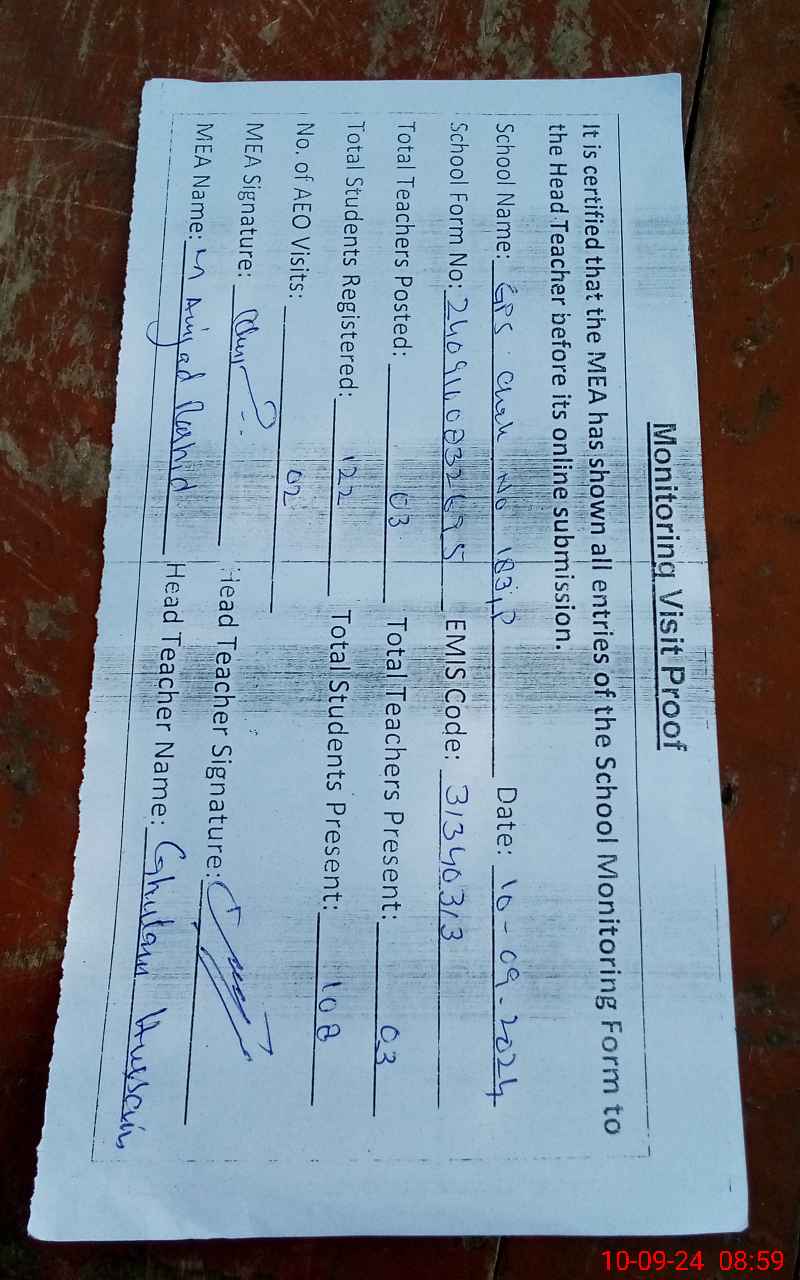 Monitoring Visit Proof
It is certified that the MEA has shown all entries of the School Monitoring Form to
the Head Teacher before its online submission.
School Name: GPS. Chak No 183/P Date: 10-09-2024
School Form No: EMIS Code: 31340313
Total Teachers Posted: 03 Total Teachers Present: 03
Total Students Registered: 122 Total Students Present: 108
No. of AEO Visits: 02
MEA Signature: Head Teacher Signature:
MEA Name: M Amjad Rashid Head Teacher Name: Ghulam Hussain
10-09-24 08:59